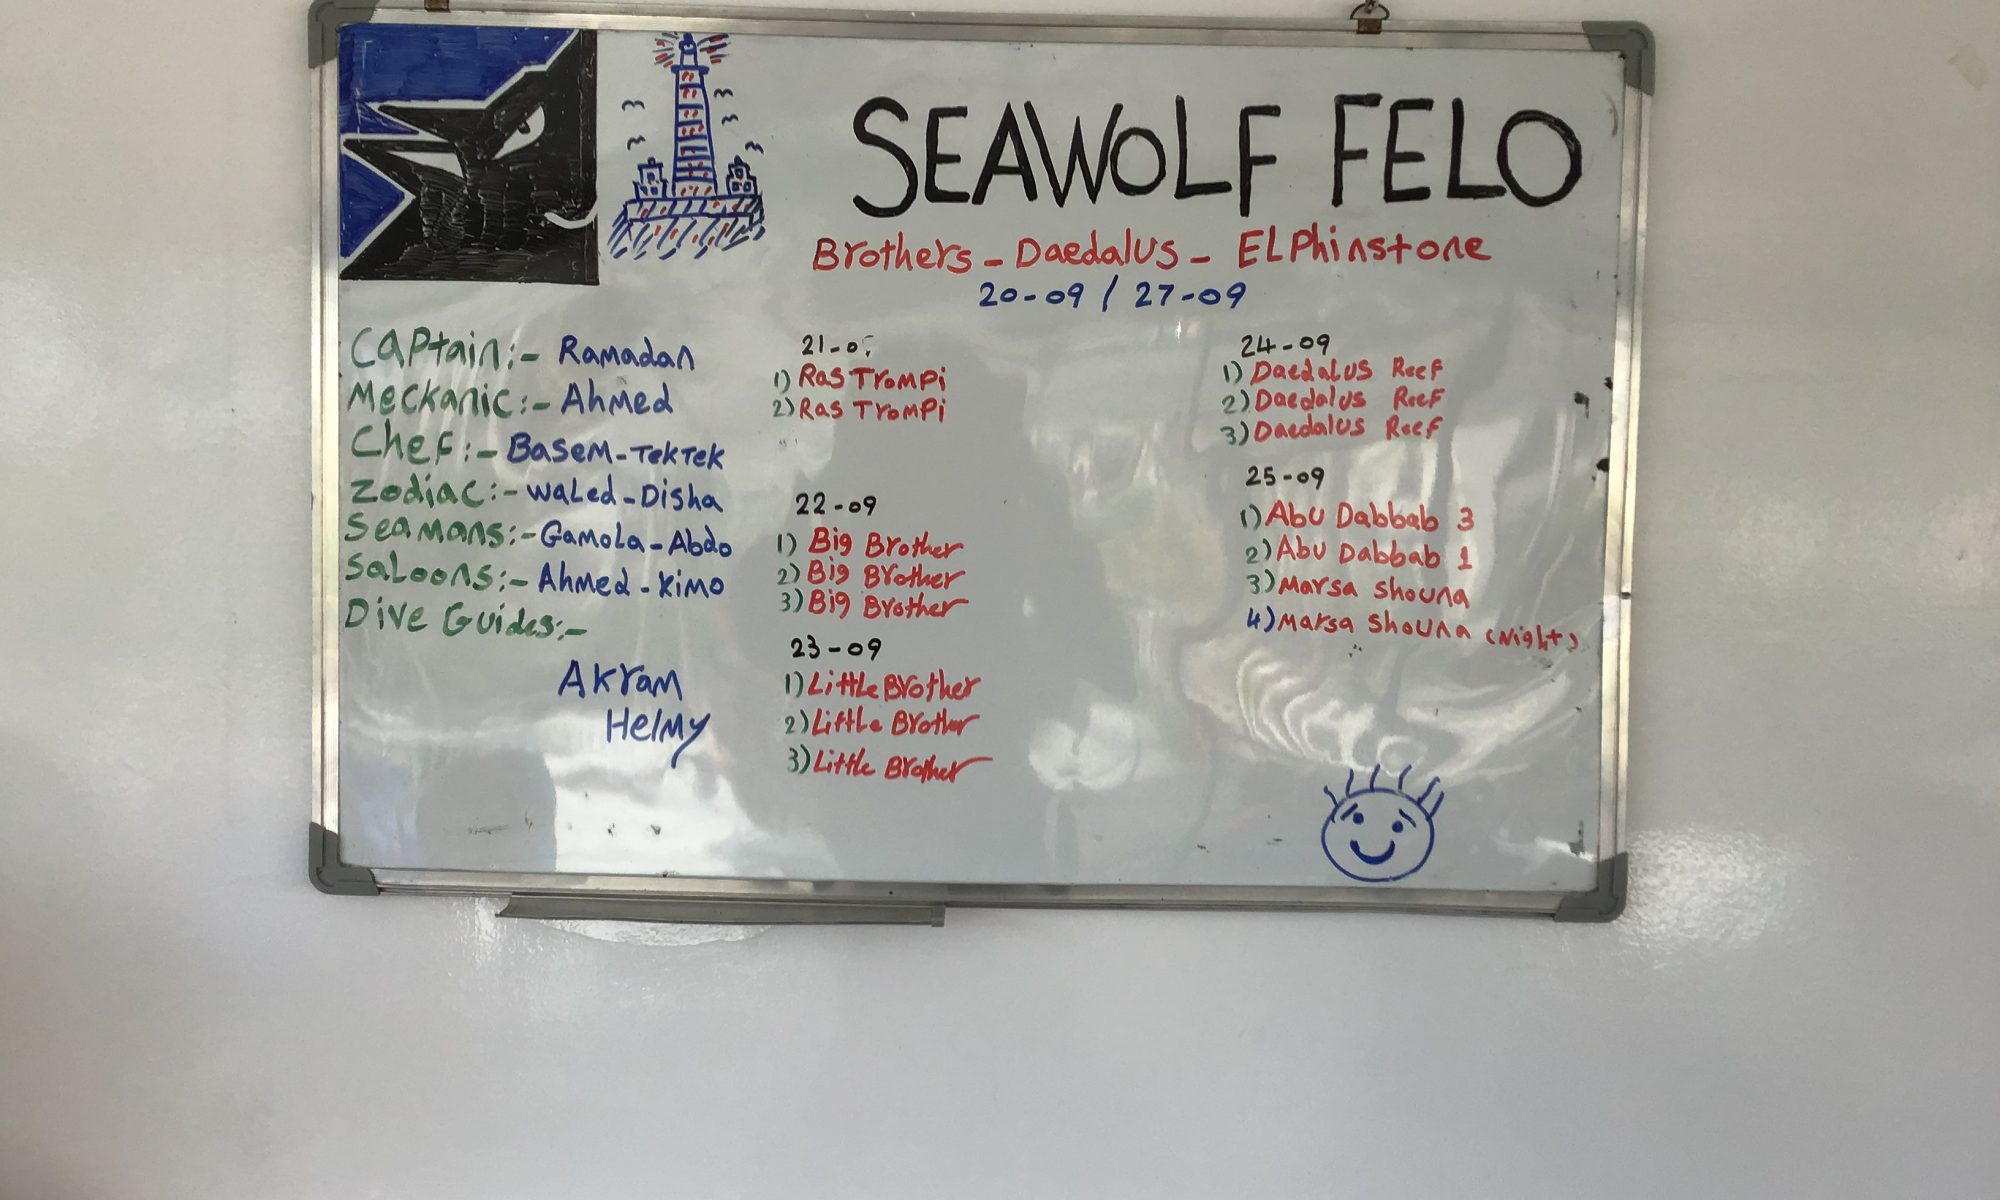 SEAWOLF FELO
Brothers - Daedalus - ELPhinstone
20-09 / 27-09
Captain:- Ramadan
Meckanic:- Ahmed
Chef:- Basem-TekTek
Zodiac:- Waled-Disha
Seamans:- Gamola-Abdo
Saloons:- Ahmed-Kimo
Dive Guides:-
Akram
Helmy
21-0
1) Ras Trompi
2) Ras Trompi
22-09
1) Big Brother
2) Big Brother
3) Big Brother
23-09
1) Little Brother
2) Little Brother
3) Little Brother
24-09
1) Daedalus Reef
2) Daedalus Reef
3) Daedalus Reef
25-09
1) Abu Dabbab 3
2) Abu Dabbab 1
3) Marsa Shouna
4) Marsa Shouna (Night)